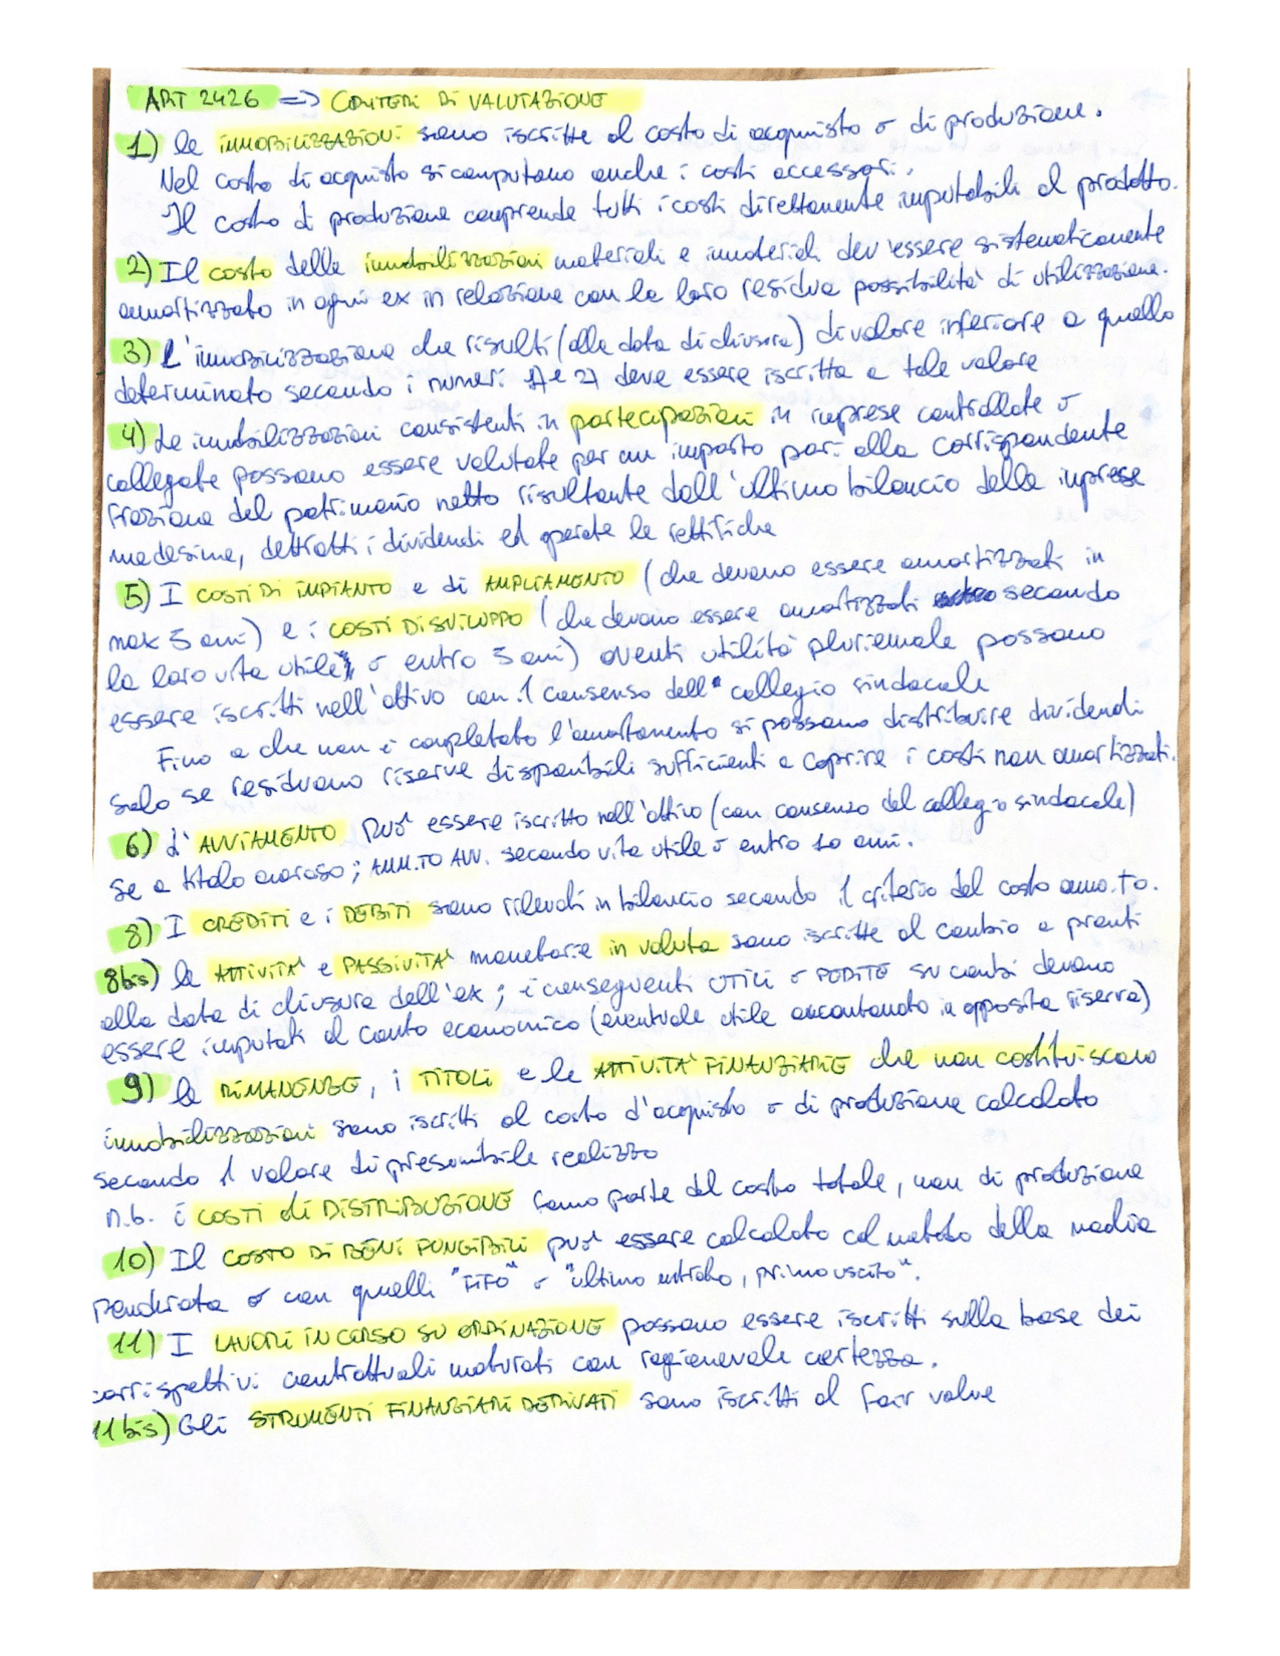 ART 2426 => CRITERI DI VALUTAZIONE
1) le immobilizzazioni sono iscritte al costo di acquisto o di produzione.
Nel costo di acquisto si computano anche i costi accessori.
Il costo di produzione comprende tutti i costi direttamente imputabili al prodotto.
2) Il costo delle immobilizzazioni materiali e immateriali dev'essere sistematicamente
ammortizzato in ogni ex in relazione con la loro residua possibilità di utilizzazione.
3) L'immobilizzazione che risulti (alla data di chiusura) di valore inferiore a quello
determinato secondo i numeri 1) e 2) deve essere iscritta a tale valore
4) Le immobilizzazioni consistenti in partecipazioni in imprese controllate o
collegate possono essere valutate per un importo pari alla corrispondente
frazione del patrimonio netto risultante dall'ultimo bilancio delle imprese
medesime, detratti i dividendi ed operate le rettifiche
5) I COSTI DI IMPIANTO e di AMPLIAMENTO (che devono essere ammortizzati in
max 5 anni) e i COSTI DI SVILUPPO (che devono essere ammortizzati secondo
la loro vita utile o entro 5 anni) aventi utilità pluriennale possono
essere iscritti nell'attivo con il consenso dell collegio sindacale
Fino a che non è completato l'ammortamento si possono distribuire dividendi
solo se residuano riserve disponibili sufficienti a coprire i costi non ammortizzati.
6) L'AVVIAMENTO può essere iscritto nell'attivo (con consenso del collegio sindacale)
se a titolo oneroso; AMM.TO AVV. secondo vita utile o entro 10 anni.
8) I CREDITI e i DEBITI sono rilevati in bilancio secondo il criterio del costo amm.to.
8bis) le ATTIVITA' e PASSIVITA' monetarie in valuta sono iscritte al cambio a pronti
alla data di chiusura dell'ex; i conseguenti UTILI o PERDITE su cambi devono
essere imputati al conto economico (eventuale utile accantonato in apposita riserva)
9) le RIMANENZE, i TITOLI e le ATTIVITA' FINANZIARIE che non costituiscono
immobilizzazioni sono iscritti al costo d'acquisto o di produzione calcolato
secondo il valore di presumibile realizzo
n.b. i COSTI di DISTRIBUZIONE fanno parte del costo totale, non di produzione
10) Il COSTO DI BENI FUNGIBILI può essere calcolato col metodo della media
ponderata o con quelli "FIFO" o "ultimo entrato, primo uscito".
11) I LAVORI IN CORSO SU ORDINAZIONE possono essere iscritti sulla base dei
corrispettivi contrattuali maturati con ragionevole certezza.
11bis) Gli STRUMENTI FINANZIARI DERIVATI sono iscritti al fair value